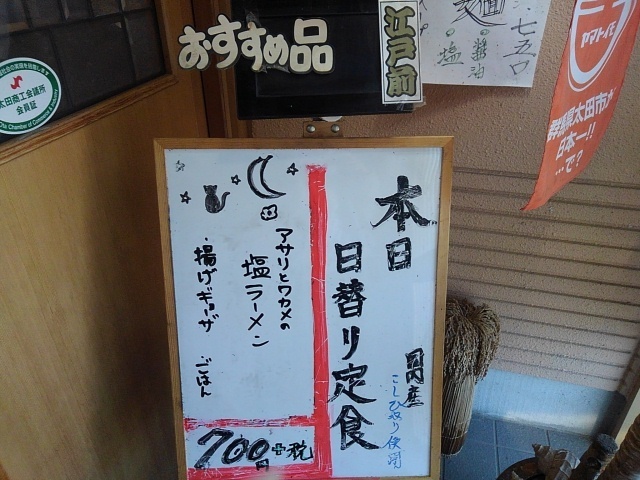 おすすめ品
江戸前
麺
醤油
塩
七五〇
ヤマト芋
群馬県太田市が
日本一!!
…で?
太田商工会議所
会員証
本日
日替り定食
国内産
こしひかり使用
アサリとワカメの
塩ラーメン
・揚げギョーザ
ごはん
700円+税